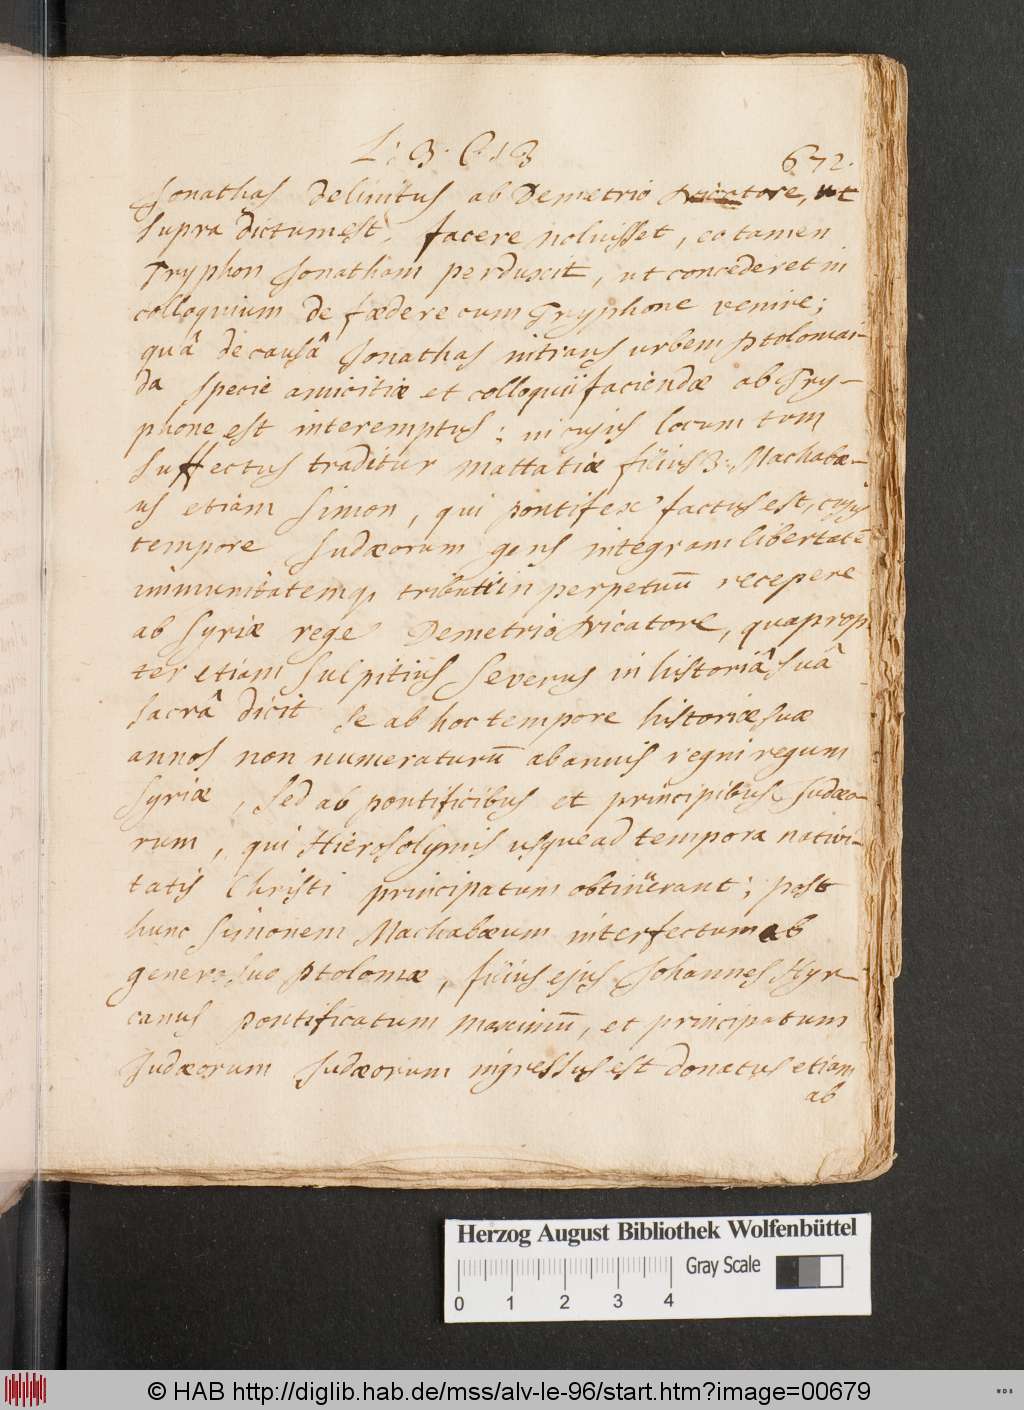 L: 3. C. 13 672.
Jonathas delinitus ab Demetrio Nicatore, ut
supra dictum est, facere noluisset, eo tamen
Tryphon Jonatham perduxit, ut concederet in
colloquium de fœdere cum Tryphone venire;
quâ de causâ Jonathas intrans urbem Ptolomai-
da specie amicitiæ et colloquii faciendæ ab Try-
phone est interemptus; in cujus locum tum
suffectus traditur Mattatiæ filius 3. Machabæ-
us etiam Simon, qui pontifex factus est, cujus
tempore Judæorum gens integram libertatē
immunitatemq, tributi in perpetuū recepere
ab Syriæ rege Demetrio Nicatore, quaprop
ter etiam Sulpitius Severus in historiâ suâ
sacrâ dicit se ab hoc tempore historiæ suæ
annos non numeraturū ab annis regni regum
Syriæ, sed ab pontificibus et principibus Judæo-
rum, qui Hierosolymis usque ad tempora nativi-
tatis Christi principatum obtinuerant; post
hunc Simonem Machabæum interfectum ab
genero suo Ptolomæ, filius ejus Johannes Hyr-
canus pontificatum maximū, et principatum
Judæorum Judæorum ingressus est donatus etiam
ab
Herzog August Bibliothek Wolfenbüttel
Gray Scale
0 1 2 3 4
© HAB http://diglib.hab.de/mss/alv-le-96/start.htm?image=00679